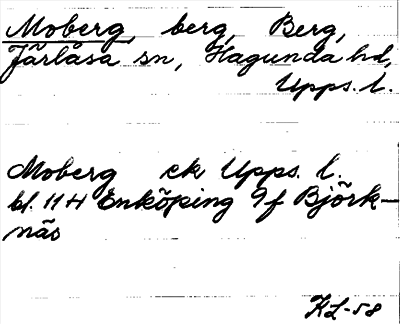 Moberg, berg, Berg,
Järlåsa sn, Hagunda hd,
Upps. l.
Moberg ek Upps. l.
bl. 11 H Enköping 9f Björk-
näs
KL-58